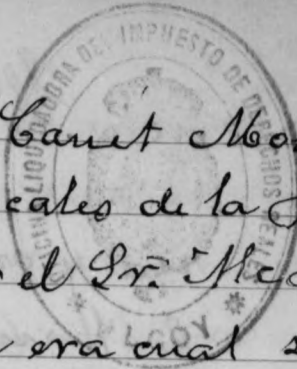 OFICINA LIQUIDADORA DEL IMPUESTO DE DERECHOS REALES
* ALCOY *
Canet
cales de la
el Sr.
era cual